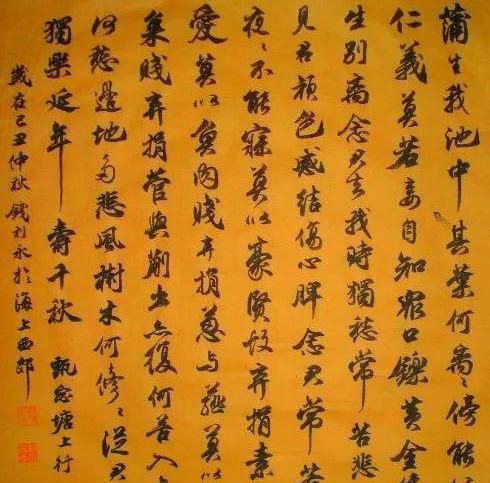 蒲生我池中其葉何离々傍能
仁義莫若妾自知眾口鑠黃金
生別离念君去我時獨愁常苦悲
見君顏色感結傷心脾念君常苦
夜々不能寐莫以豪賢故棄捐素
愛莫以魚肉賤棄捐蔥与薤莫以
枲賤棄捐菅與蒯出亦復何苦入
何愁邊地多悲風樹木何翛々從君
獨樂延年壽千秋 甄宓塘上行
歲在己丑仲秋錢利永於海上西郊